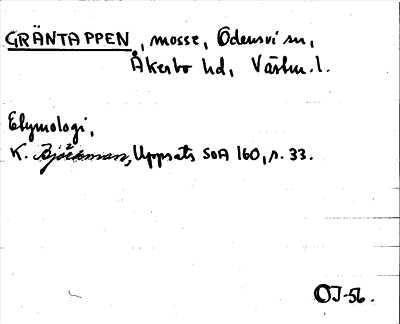 GRÄNTAPPEN, mosse, Odensvi sn,
Åkerbo hd, Västm. l.
Etymologi,
K. Björkman, Uppsats SOA 160, s. 33.
OJ-56.